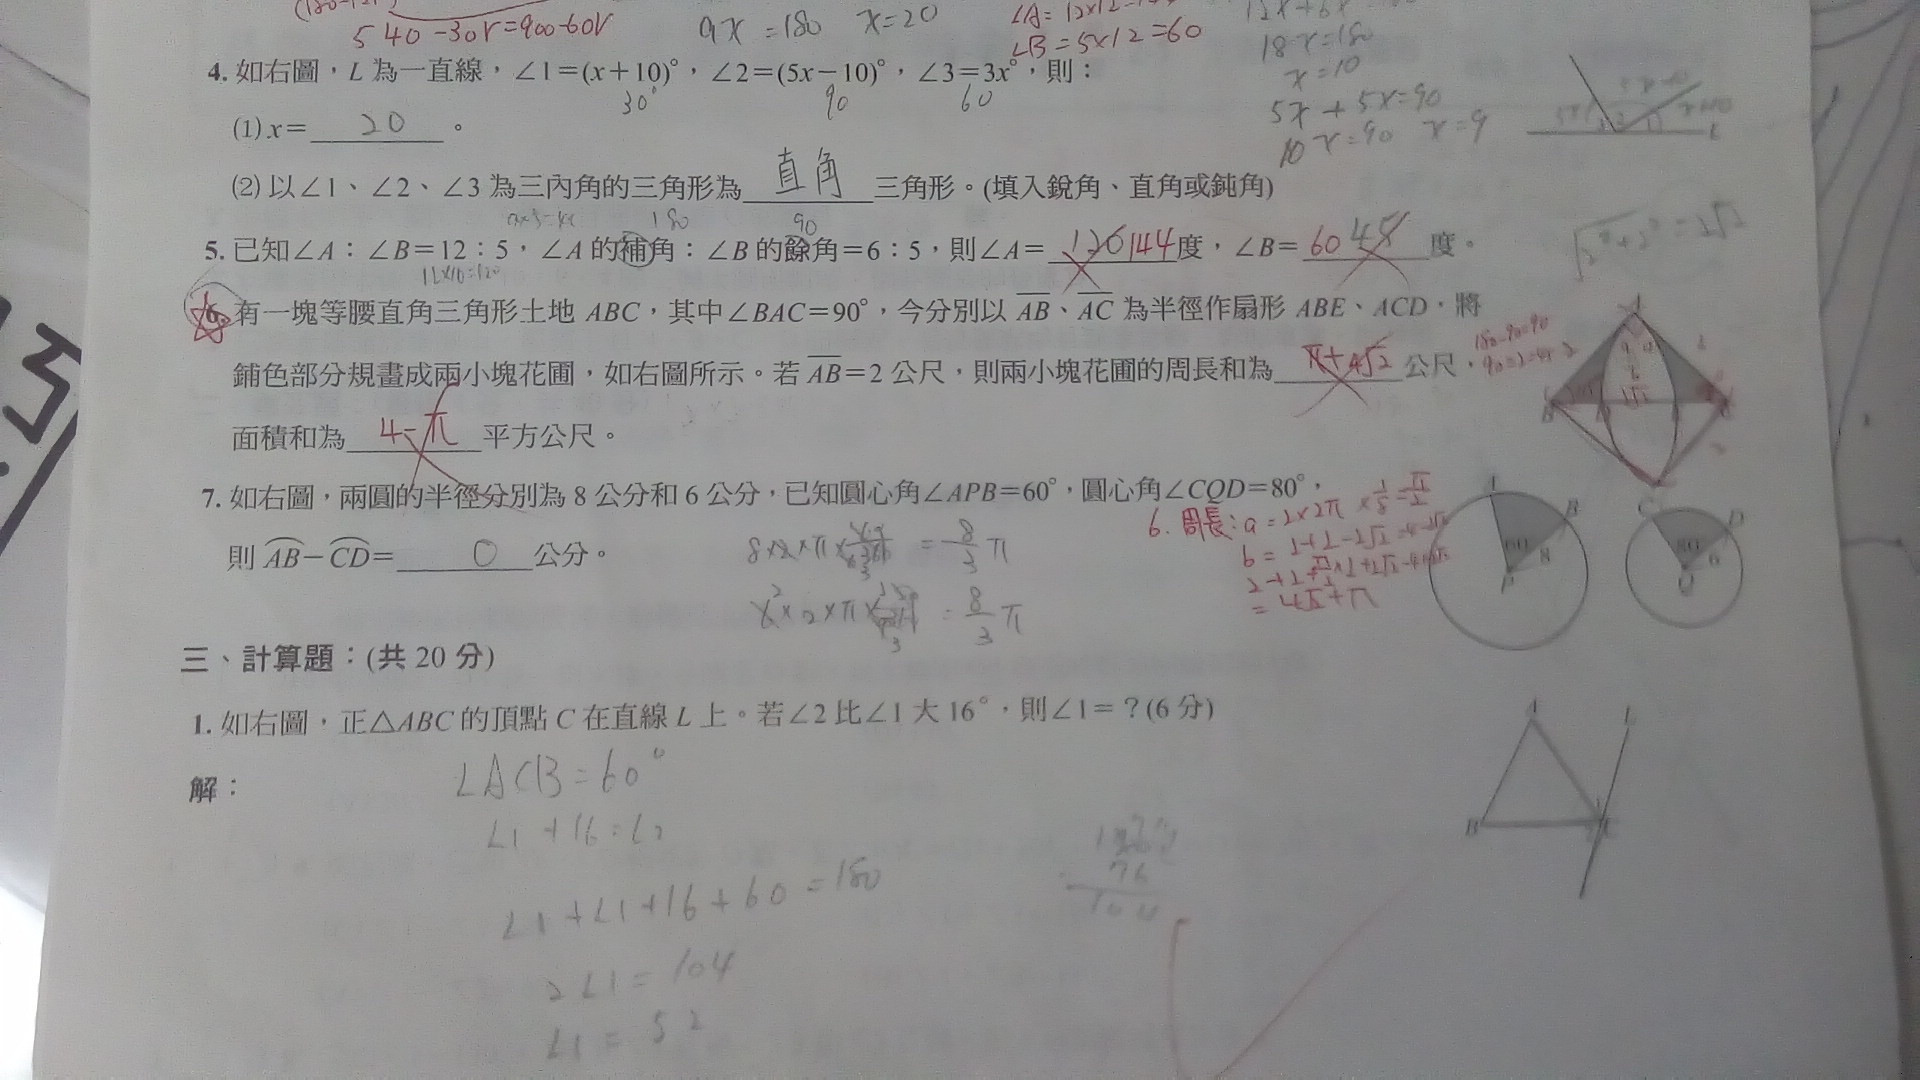 540-30r=900-60r
9x=180 x=20
∠B=5×12=60
18x=180
x=10
4. 如右圖，L 為一直線，∠1=(x+10)°，∠2=(5x-10)°，∠3=3x°，則：
30° 90 60
5x+5x=90
10x=90 x=9
(1) x= 20 。
(2) 以∠1、∠2、∠3 為三內角的三角形為 直角 三角形。(填入銳角、直角或鈍角)
180 90
5. 已知∠A：∠B=12：5，∠A 的補角：∠B 的餘角=6：5，則∠A= 120 144 度，∠B= 60 48 度。
12×10=120
6. 有一塊等腰直角三角形土地 ABC，其中∠BAC=90°，今分別以 AB、AC 為半徑作扇形 ABE、ACD，將
鋪色部分規畫成兩小塊花圃，如右圖所示。若 AB=2 公尺，則兩小塊花圃的周長和為 π+4√2 公尺，
180-90=90
面積和為 4-π 平方公尺。
7. 如右圖，兩圓的半徑分別為 8 公分和 6 公分，已知圓心角∠APB=60°，圓心角∠CQD=80°，
則 AB-CD= 0 公分。
= 8/3 π
= 8/3 π
6. 周長：a=2×2π×1/8=π/2
=4√2+π
A B 60 8 P
C D 80 6 Q
三、計算題：(共 20 分)
1. 如右圖，正△ABC 的頂點 C 在直線 L 上。若∠2 比∠1 大 16°，則∠1=？(6 分)
解：
∠ACB=60°
∠1+16=∠2
∠1+∠1+16+60=180
2∠1=104
∠1=52
A L
B C